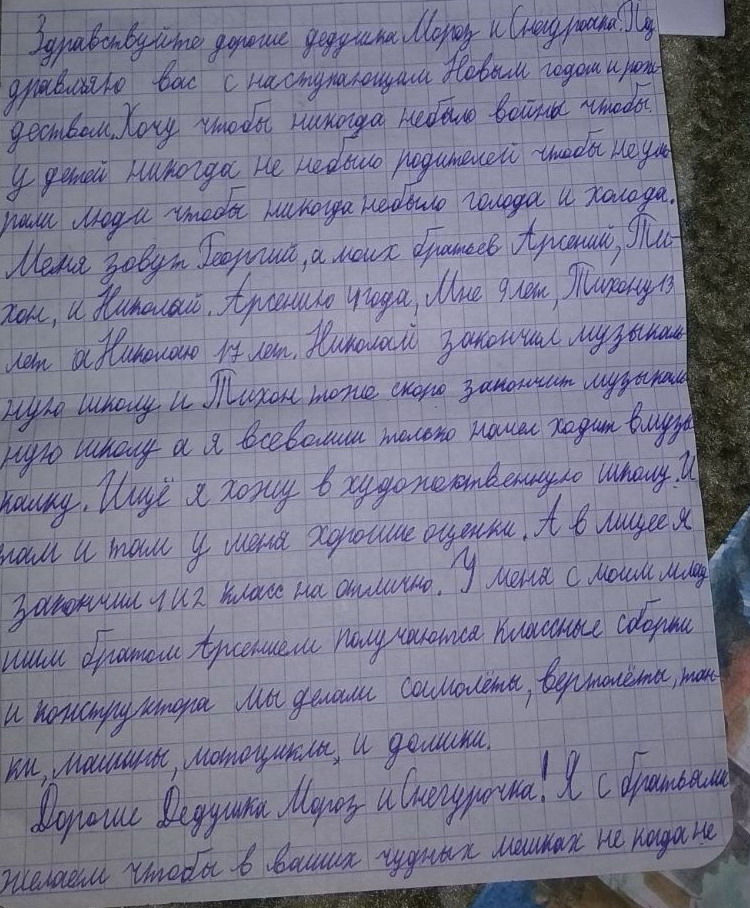 Здравствуйте дорогие дедушка Мороз и Снегурочка. Поз
дравляю вас с наступающим Новым годом и рож
деством. Хочу чтобы никогда небыло войны чтобы
у детей никогда не небыло родителей чтобы не уми
рали люди чтобы никогда небыло голода и холода.
Меня зовут Георгий, а моих братьев Арсений, Ти-
хон, и Николай. Арсению 4 года, Мне 9 лет, Тихону 13
лет а Николаю 17 лет. Николай закончил музыкаль
ную школу и Тихон тоже скоро закончит музыкаль
ную школу а я всеволишь только начел ходит в музы
калку. Ищё я хожу в художоктвенную школу. И
там и там у меня хорошие оценки. А в лицее я
закончил 1 и 2 класс на отлично. У меня с моим млад
шим братом Арсением получаются классные сборки
и конструктора мы делали самолёты, вертолёты, тан-
ки, машины, мотоциклы, и домики.
Дорогие Дедушка Мороз и Снегурочка! Я с братьями
желаем чтобы в ваших чудных мешках не когда не